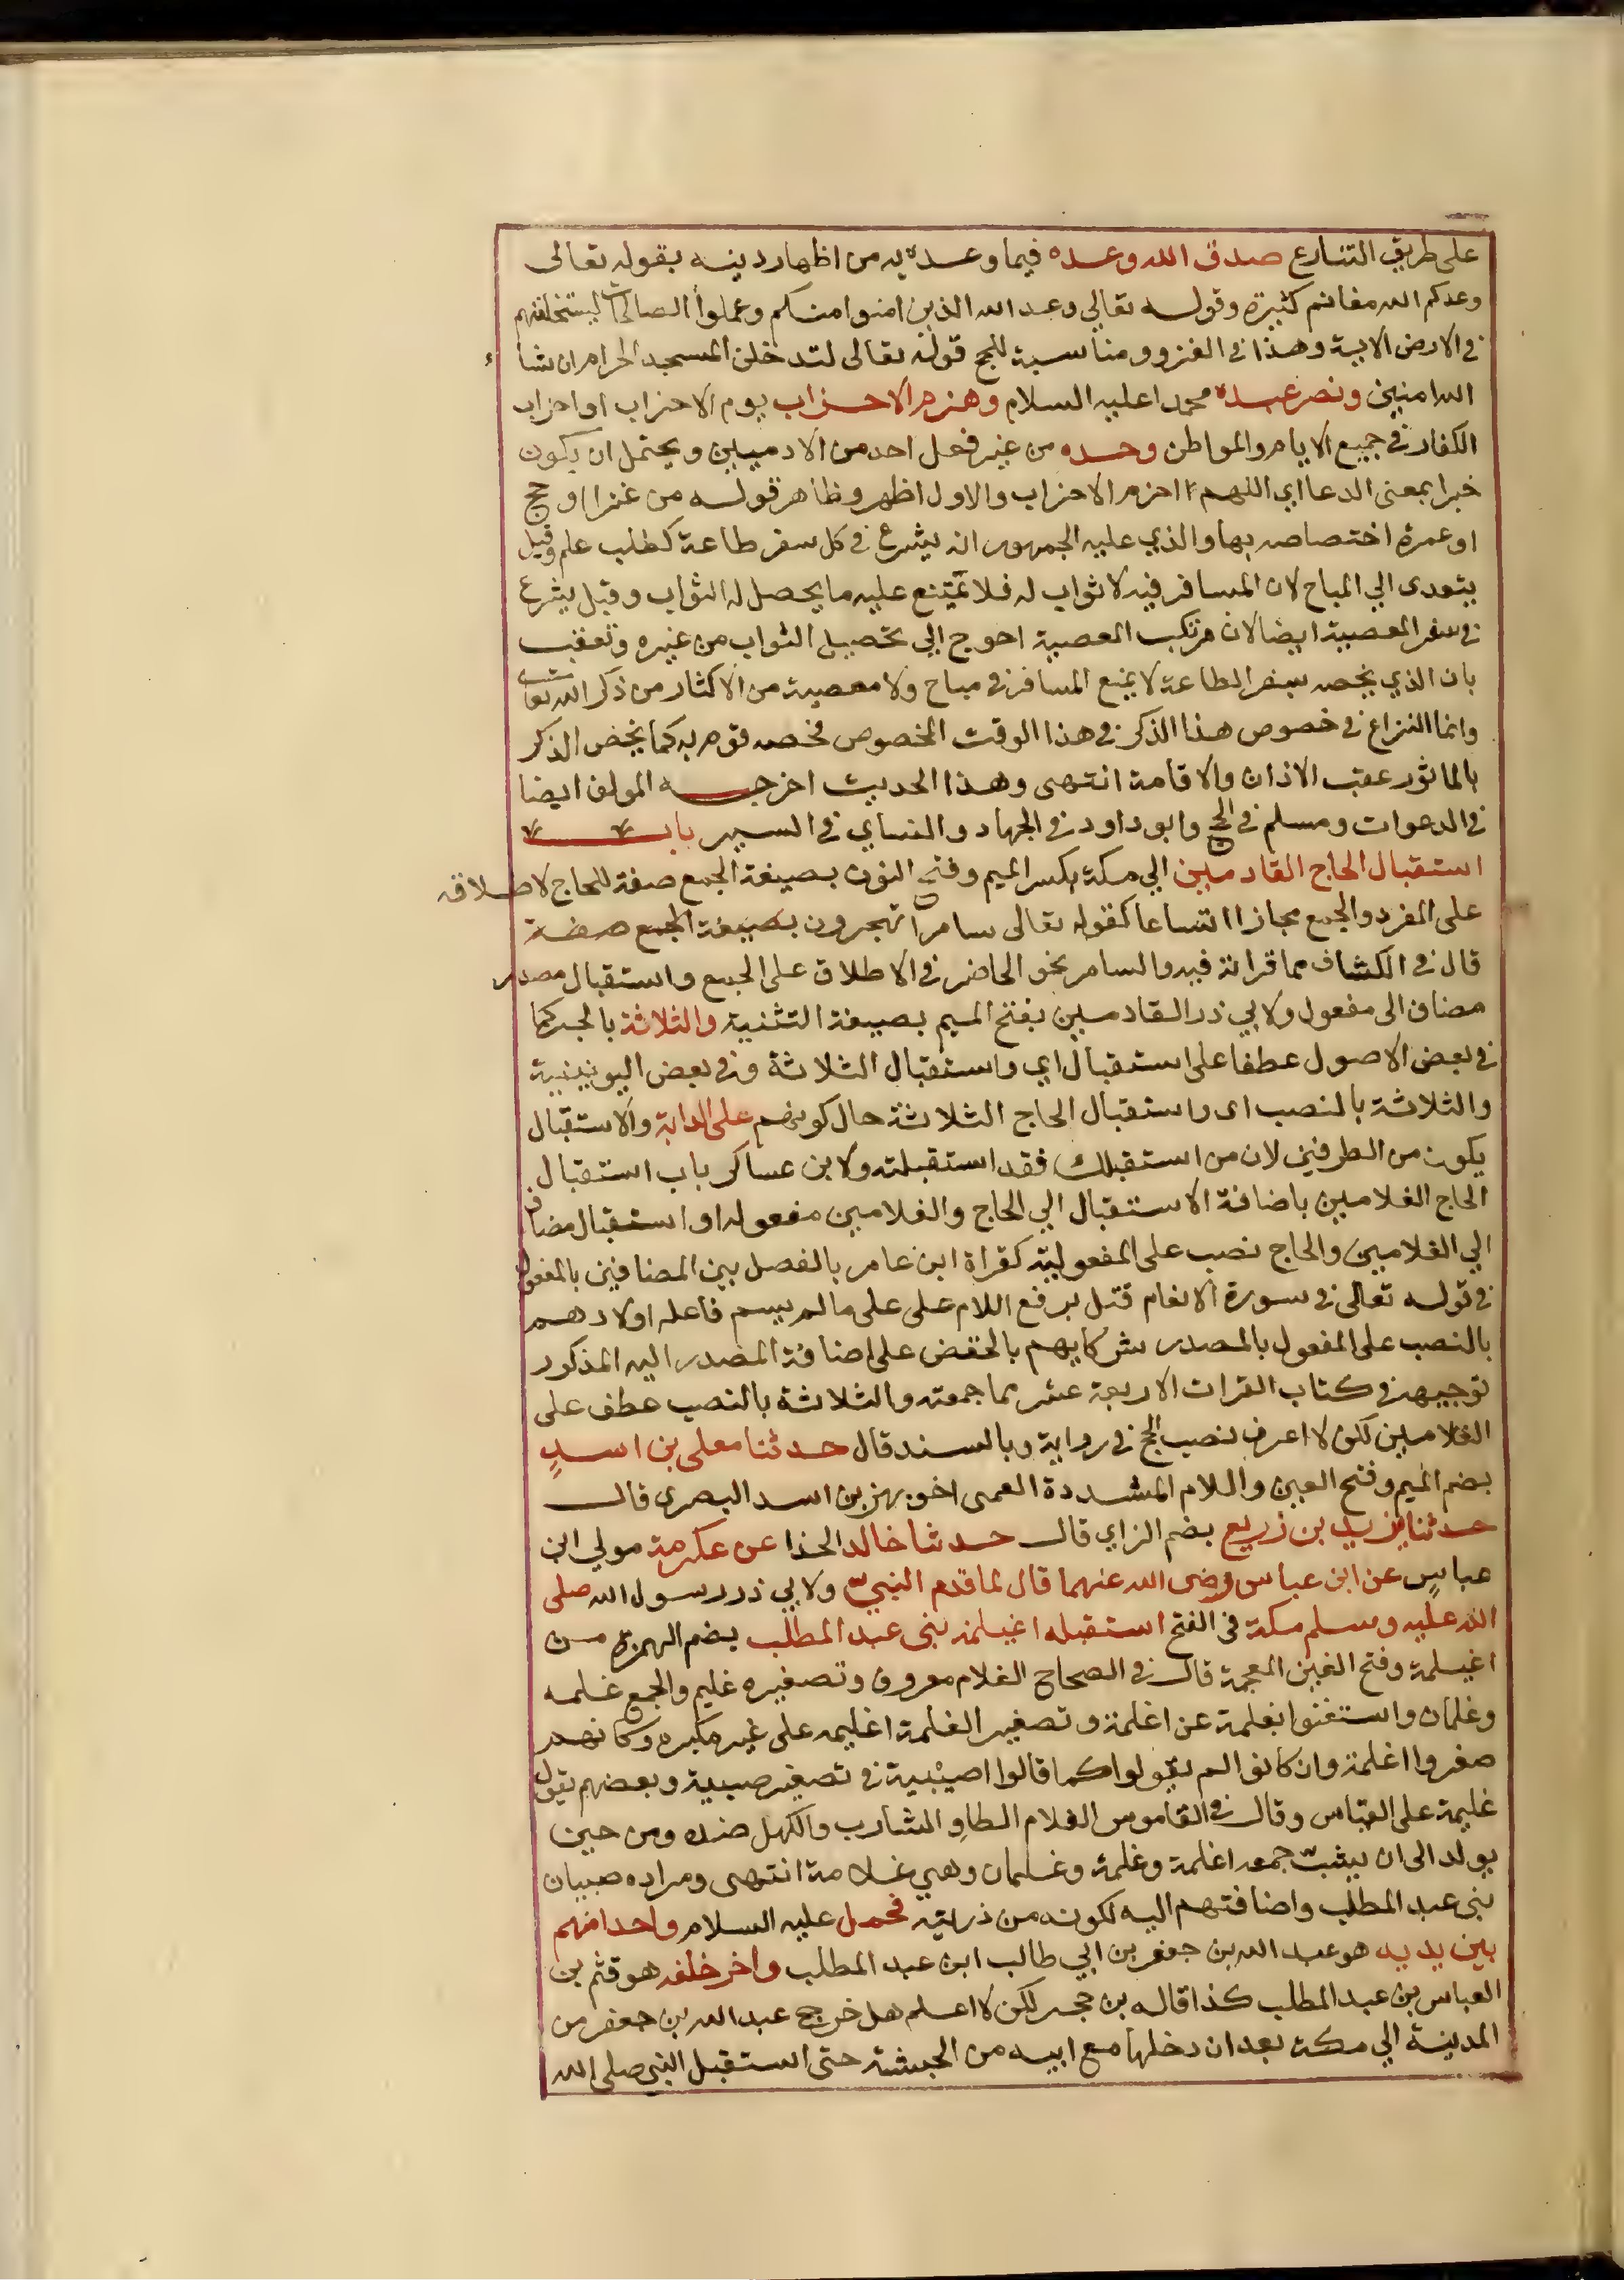 على طريق التنازع صدق الله وعده فيما وعده به من اظهار دينه بقوله تعالى
وعدكم الله مغانم كثيرة وقوله تعالي وعد الله الذين امنوا منكم وعملوا الصالحات ليستخلفنهم
في الارض الاية وهذا في الغزو ومناسبة للحج قوله تعالى لتدخلن المسجد الحرام ان شاء
الله امنين ونصر عبده محمدا عليه السلام وهزم الاحزاب يوم الاحزاب او احزاب
الكفار في جميع الايام والمواطن وحده من غير فعل احد من الادميين ويحتمل ان يكون
خبرا بمعنى الدعا اي اللهم احزم الاحزاب والاول اظهر وظاهر قوله من غزا او حج
او عمرة اختصاصه بها والذي عليه الجمهور انه يشرع في كل سفر طاعة كطلب علم وقيل
يتعدى الي المباح لان المسافر فيه لا ثواب له فلا تمتنع عليه ما يحصل له الثواب وقيل يشرع
في سفر المعصية ايضا لان مرتكب المعصية احوج الي تحصيل الثواب من غيره وتعقب
بان الذي يخصه بسفر الطاعة لا يمنع المسافر في مباح ولا معصية من الاكثار من ذكر الله تعالى
وانما النزاع في خصوص هذا الذكر في هذا الوقت المخصوص فخصه قوم به كما يخص الذكر
بالماثور عقب الاذان والاقامة انتهى وهذا الحديث اخرجه المولف ايضا
في الدعوات ومسلم في الحج وابو داود في الجهاد والنساي في السير باب
استقبال الحاج القادمين الي مكة بكسر الميم وفتح النون بصيغة الجمع صفة للحاج لاطلاقه
على المفرد والجمع مجازا اتساعا كقوله تعالى سامرا تهجرون بصيغة الجمع صفة
قال في الكشاف مما قراته فيه والسامر نحو الحاضر في الاطلاق على الجمع واستقبال مصدر
مضاف الى مفعول ولابي ذر القادمين بفتح الميم بصيغة التثنية والثلاثة بالجر كما
في بعض الاصول عطفا على استقبال اي واستقبال الثلاثة وفي بعض اليونينية
والثلاثة بالنصب اى واستقبال الحاج الثلاثة حال كونهم على الدابة والاستقبال
يكون من الطرفين لان من استقبلك فقد استقبلته ولابن عساكر باب استقبال
الحاج الغلامين باضافة الاستقبال الي الحاج والغلامين مفعوله او استقبال مضاف
الي الغلامين والحاج نصب على المفعولية كقراة ابن عامر بالفصل بين المضافين بالمفعول
في قوله تعالى في سورة الانعام قتل برفع اللام على على مالم يسم فاعله اولادهم
بالنصب على المفعول بالمصدر شركايهم بالخفض على اضافة المصدر اليه المذكور
توجيهه في كتاب القرات الاربعة عشر مما جمعته والثلاثة بالنصب عطف على
الغلامين لكن لا اعرف نصب الحج في رواية وبالسند قال حدثنا معلى بن اسدٍ
بضم الميم وفتح العين واللام المشددة العمى اخو بهز بن اسد البصرى قال
حدثنا يزيد بن زريع بضم الزاي قال حدثنا خالد الحذا عن عكرمة مولي ابن
عباسٍ عن ابن عباس رضى الله عنهما قال لما قدم النبيّ ولابي ذر رسول الله صلى
الله عليه وسلم مكة في الفتح استقبله اغيلمة بنى عبد المطلب بضم الهمزة من
اغيلمة وفتح الغين المعجمة قال في الصحاح الغلام معروف وتصغيره غليم والجمع غلمه
وغلمان واستغنوا بغلمة عن اغلمة وتصغير الغلمة اغليمه على غير مكبره وكانهم
صغروا اغلمة وان كانوا لم يقولوا كما قالوا اصيبية في تصغير صبية وبعضهم يقول
غليمة على القياس وقال في القاموس الغلام الطاوِ الشارب والكهل ضده ومن حين
يولد الى ان يشبّ جمعه اغلمة وغلمة وغلمان وهي غلامة انتهى ومراده صبيان
بنى عبد المطلب واضافتهم اليه لكونه من ذريته فحمل عليه السلام واحدا منهم
بين يديه هو عبد الله بن جعفر بن ابي طالب ابن عبد المطلب واخر خلفه هو قثم بن
العباس بن عبد المطلب كذا قاله بن حجر لكن لا اعلم هل خرج عبد الله بن جعفر من
المدينة الي مكة بعد ان دخلها مع ابيه من الحبشة حتى استقبل النبي صلى الله